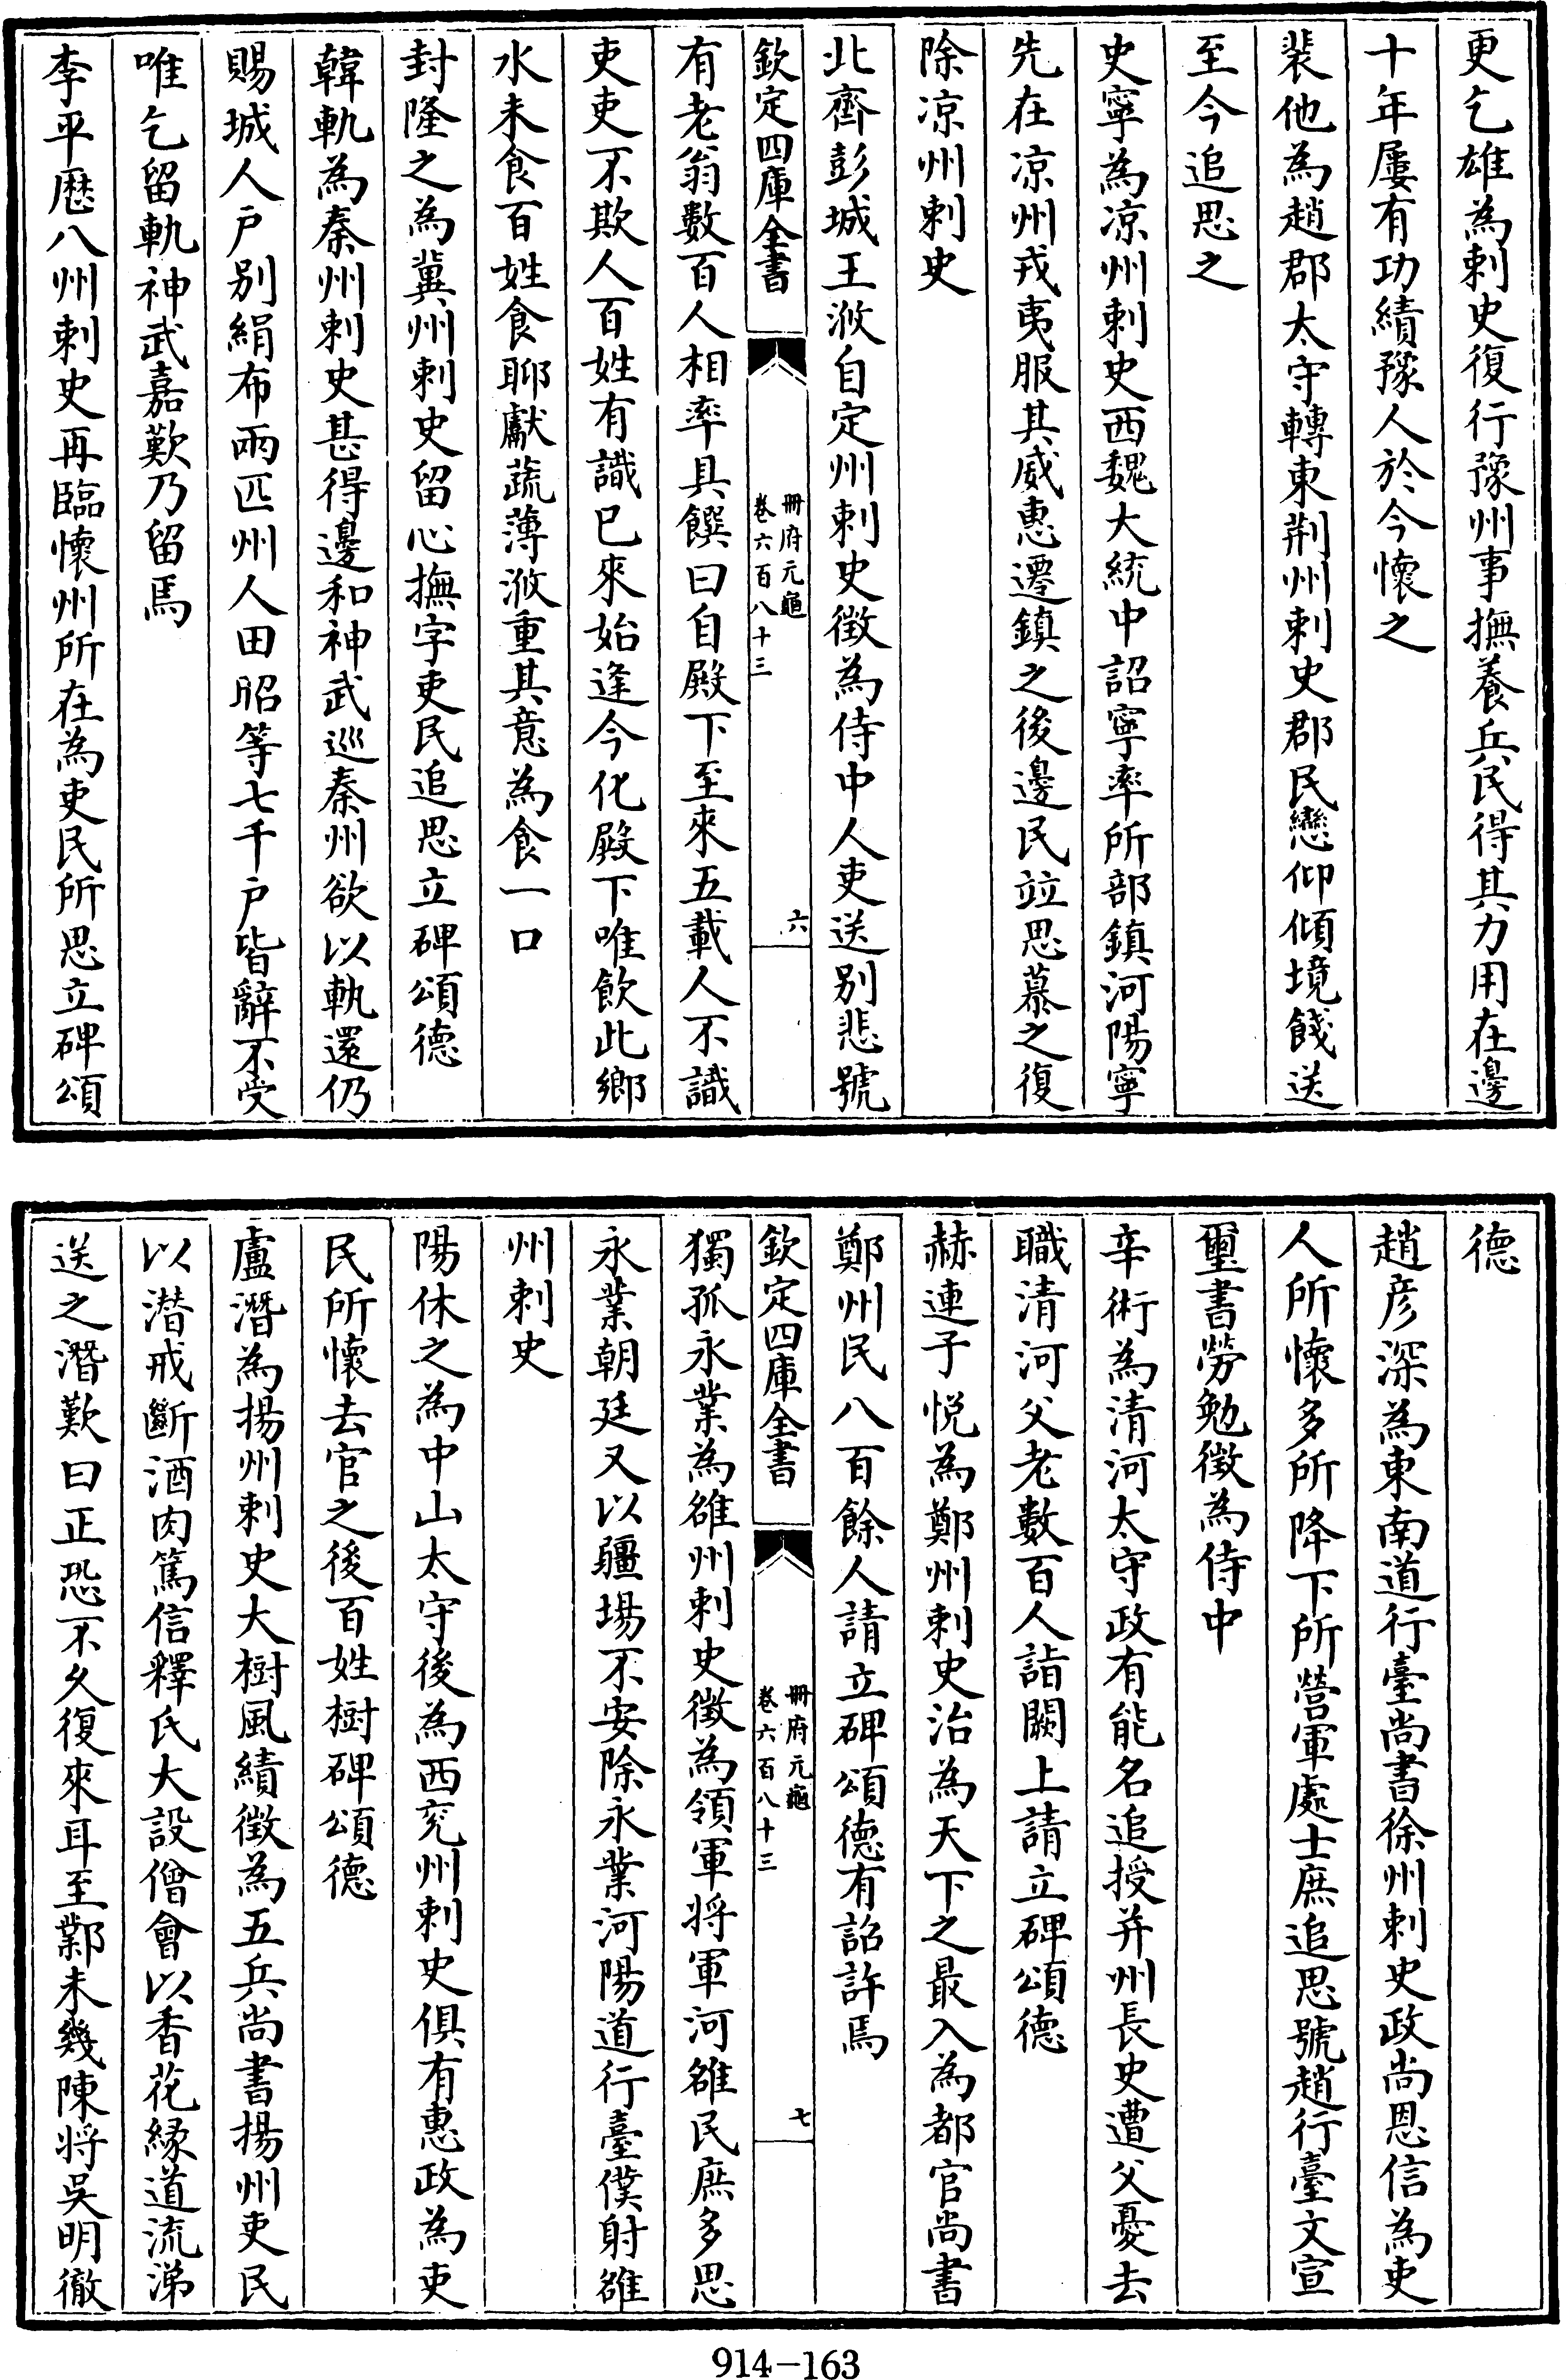 更乞雄為刺史復行豫州事撫養兵民得其力用在邊
十年屢有功績豫人於今懷之
裴他為趙郡太守轉東荆州刺史郡民戀仰傾境餞送
至今追思之
史寧為凉州刺史西魏大統中詔寧率所部鎮河陽寧
先在凉州戎夷服其威惠遷鎮之後邊民竝思慕之復
除凉州刺史
北齊彭城王浟自定州刺史徴為侍中人吏送别悲號
欽定四庫全書
冊府元龜
卷六百八十三
六
有老翁數百人相率具饌曰自殿下至來五載人不識
吏吏不欺人百姓有識已來始逢今化殿下唯飲此鄉
水未食百姓食聊獻蔬薄浟重其意為食一口
封隆之為冀州刺史留心撫字吏民追思立碑頌德
韓軌為秦州刺史甚得邊和神武巡秦州欲以軌還仍
賜城人户别絹布兩匹州人田昭等七千户皆辭不受
唯乞留軌神武嘉歎乃留焉
李平歴八州刺史再臨懷州所在為吏民所思立碑頌
德
趙彦深為東南道行臺尚書徐州刺史政尚恩信為吏
人所懷多所降下所營軍處士庶追思號趙行臺文宣
璽書勞勉徴為侍中
辛術為清河太守政有能名追授并州長史遭父憂去
職清河父老數百人詣闕上請立碑頌德
赫連子悦為鄭州刺史治為天下之最入為都官尚書
鄭州民八百餘人請立碑頌德有詔許焉
欽定四庫全書
冊府元龜
卷六百八十三
七
獨孤永業為雒州刺史徴為領軍将軍河雒民庶多思
永業朝廷又以疆埸不安除永業河陽道行臺僕射雒
州刺史
陽休之為中山太守後為西兖州刺史俱有惠政為吏
民所懷去官之後百姓樹碑頌德
盧潛為揚州刺史大樹風績徴為五兵尚書揚州吏民
以潜戒斷酒肉篤信釋氏大設僧會以香花緣道流涕
送之潛歎曰正恐不久復來耳至鄴未幾陳将吳明徹
914-163